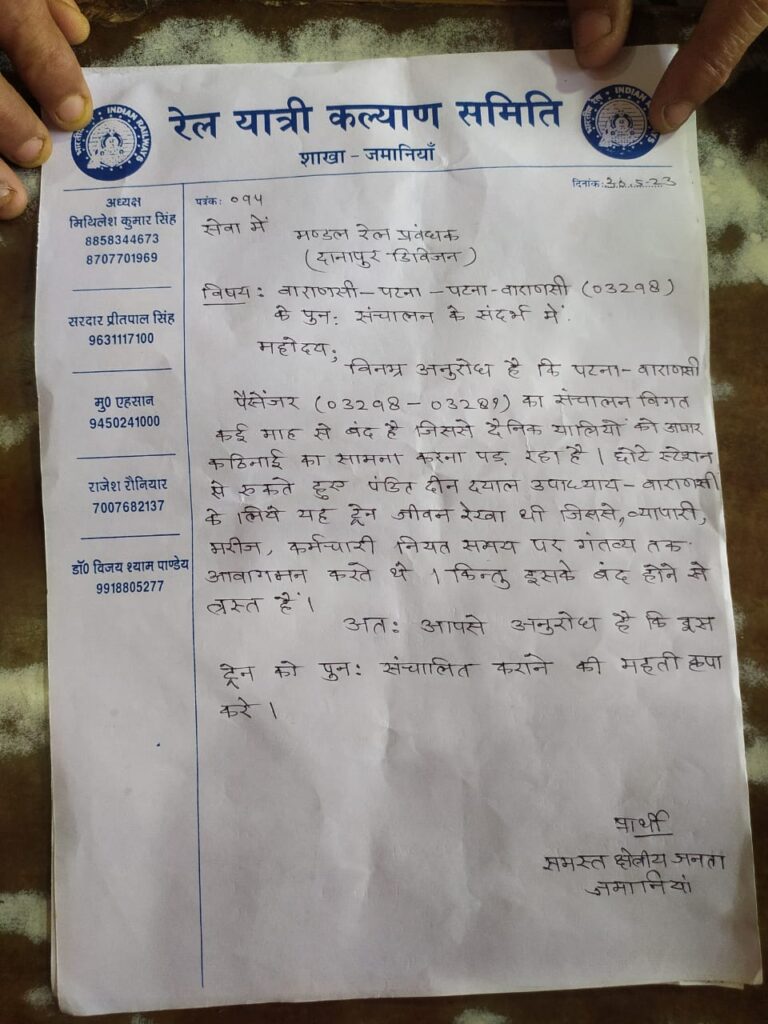 रेल यात्री कल्याण समिति
शाखा - जमानियाँ
INDIAN RAILWAYS
भारतीय रेल
अध्यक्ष
मिथिलेश कुमार सिंह
8858344673
8707701969
सरदार प्रीतपाल सिंह
9631117100
मु0 एहसान
9450241000
राजेश रौनियार
7007682137
डॉ0 विजय श्याम पाण्डेय
9918805277
पत्रंक: ०१५
दिनांक:
सेवा में
मण्डल रेल प्रबंधक
(दानापुर डिविजन)
विषय: वाराणसी-पटना-पटना-वाराणसी (03298)
के पुन: संचालन के संदर्भ में.
महोदय;
विनम्र अनुरोध है कि पटना-वाराणसी
पैसेंजर (03298-03289) का संचालन विगत
कई माह से बंद है जिससे दैनिक यात्रियों को अपार
कठिनाई का सामना करना पड़ रहा है। छोटे स्टेशन
से रुकते हुए पंडित दीन दयाल उपाध्याय-वाराणसी
के लिये यह ट्रेन जीवन रेखा थी जिससे, व्यापारी,
मरीज, कर्मचारी नियत समय पर गंतव्य तक
आवागमन करते थे। किन्तु इसके बंद होने से
त्रस्त हैं।
अत: आपसे अनुरोध है कि इस
ट्रेन को पुन: संचालित कराने की महती कृपा
करे।
प्रार्थी
समस्त क्षेत्रीय जनता
जमानियां